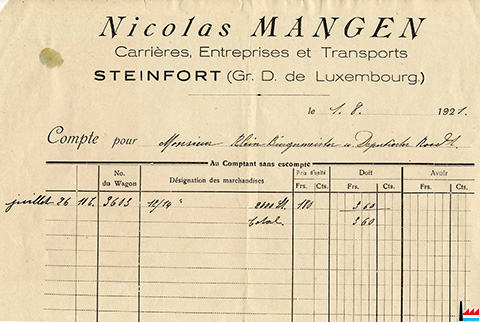 Nicolas MANGEN
Carrières, Entreprises et Transports
STEINFORT (Gr. D. de Luxembourg.)
le 1. 8. 1921.
Compte pour Monsieur Klein Bürgermeister u. Deputierter
Au Comptant sans escompte
No. du Wagon Désignation des marchandises Prix d'unité Doit Avoir
Frs. Cts. Frs. Cts. Frs. Cts.
juillet 26 3603 12/14 " 180 360
Total 360